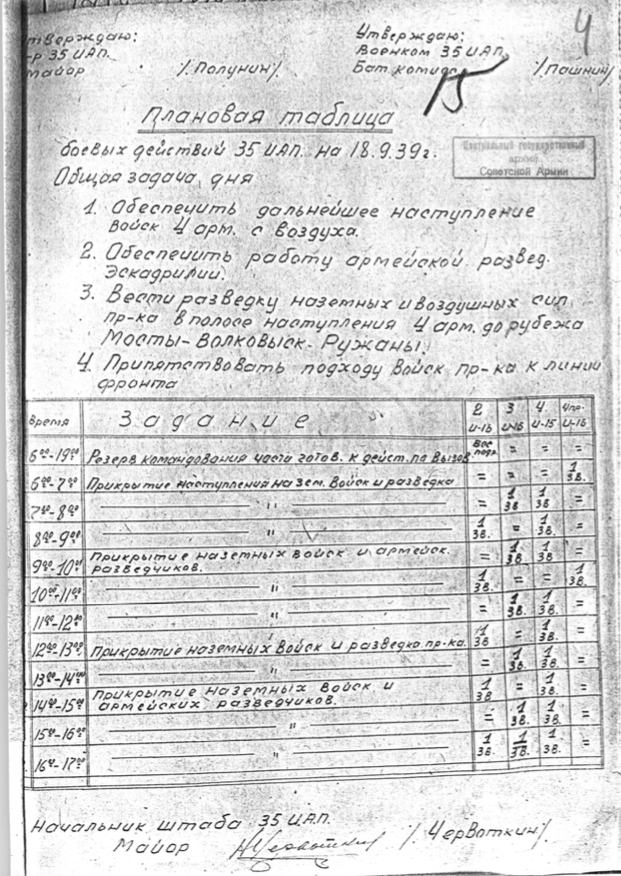 4
Утверждаю:
Утверждаю:
-р 35 ИАП.
Военком 35 ИАП.
Майор /Полунин/
Бат. комиссар /Пашнин/
Плановая таблица
боевых действий 35 ИАП. на 18.9.39г.
Центральный государственный
архив
Советской Армии
Общая задача дня
1. Обеспечить дальнейшее наступление
войск 4 арм. с воздуха.
2. Обеспечить работу армейской развед.
Эскадрилии.
3. Вести разведку наземных и воздушных сил
пр-ка в полосе наступления 4 арм. до рубежа
Мосты-Волковыск-Ружаны.
4. Припятствовать подходу войск пр-ка к линии
фронта
Время Задание 2 И-16 3 И-16 4. И-15 4пр. И-16
6⁰⁰-19⁰⁰ Резерв командования части готов. к дейст. по вызов = = =
6⁰⁰-7⁰⁰ Прикрытие наступления назем. войск и разведка = = = 1 зв.
7⁰⁰-8⁰⁰ " = 1 зв 1 зв. =
8⁰⁰-9⁰⁰ " 1 зв. = 1 зв. =
9⁰⁰-10⁰⁰ Прикрытие наземных войск и армейск.
разведчиков. = 1 зв. 1 зв. =
10⁰⁰-11⁰⁰ " 1 зв. = = 1 зв.
11⁰⁰-12⁰⁰ " = 1 зв. 1 зв. =
12⁰⁰-13⁰⁰ Прикрытие наземных войск и разведка пр-ка. 1 зв = 1 зв. =
13⁰⁰-14⁰⁰ " = 1 зв. 1 зв. =
14⁰⁰-15⁰⁰ Прикрытие наземных войск и
армейских разведчиков. 1 зв. = 1 зв. =
15⁰⁰-16⁰⁰ " = 1 зв. 1 зв. =
16⁰⁰-17⁰⁰ " 1 зв. 1 зв. 1 зв. =
Начальник штаба 35 ИАП.
Майор /Червоткин/